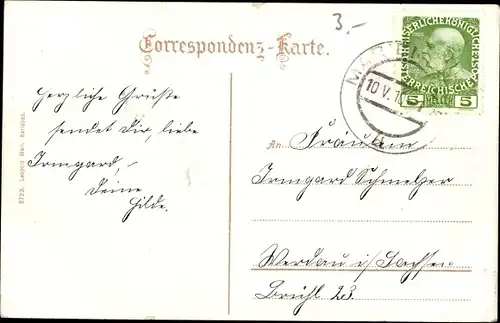 3.-
Correspondenz-Karte.
KAISERLICHE KÖNIGLICHE
ÖSTERREICHISCHE POST
5 HELLER 5
10 V. 1
Herzliche Grüße
sendet Dir, liebe
Irmgard,
Deine
Hilde.
An Fräulein
Irmgard Schmelzer
Werdau i/Sachsen
Brühl 23.
8723. Leopold Weil, Karlsbad.